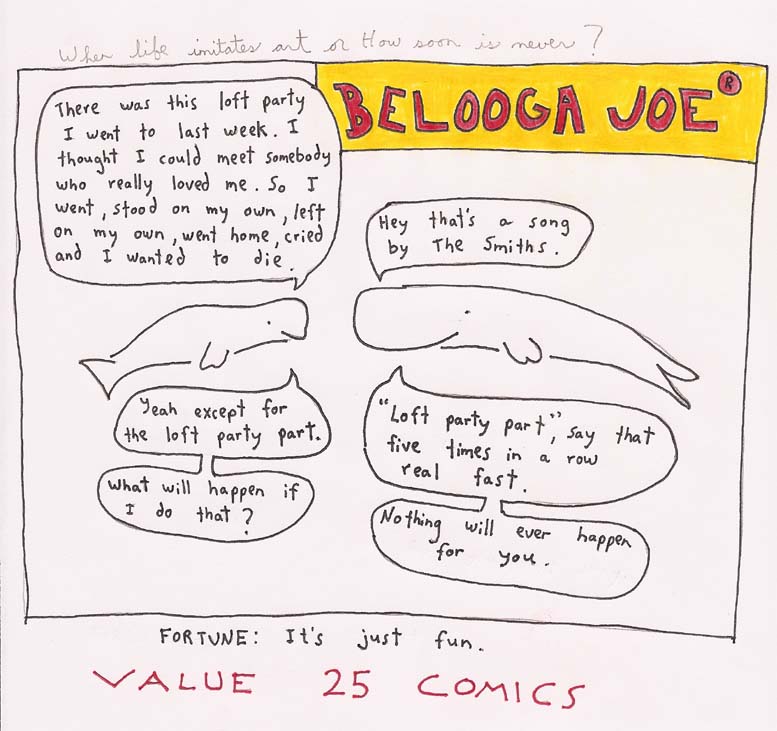 When life imitates art or How soon is never?
BELOOGA JOE®
There was this loft party
I went to last week. I
thought I could meet somebody
who really loved me. So I
went, stood on my own, left
on my own, went home, cried
and I wanted to die.
Hey that's a song
by The Smiths.
Yeah except for
the loft party part.
"Loft party part", say that
five times in a row
real fast.
What will happen if
I do that?
Nothing will ever happen
for you.
FORTUNE: It's just fun.
VALUE 25 COMICS